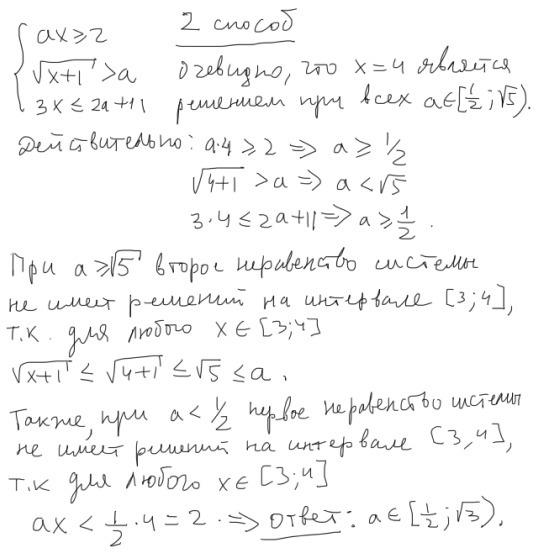 2 способ
{ ax ≥ 2
√x+1 > a очевидно, что x = 4 является
3x ≤ 2a+11 решением при всех a∈[1/2; √5).
Действительно: a·4 ≥ 2 ⇒ a ≥ 1/2
√4+1 > a ⇒ a < √5
3·4 ≤ 2a+11 ⇒ a ≥ 1/2.
При a ≥ √5 второе неравенство системы
не имеет решений на интервале [3;4],
т.к. для любого x ∈ [3;4]
√x+1 ≤ √4+1 ≤ √5 ≤ a.
Также, при a < 1/2 первое неравенство системы
не имеет решений на интервале [3,4],
т.к для любого x∈[3;4]
ax < 1/2·4 = 2. ⇒ Ответ: a∈[1/2; √3).